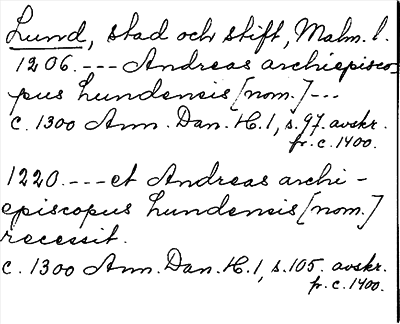 Lund, stad och stift, Malm. l.
1206. --- Andreas archiepisco-
pus Lundensis [nom.] ---
c. 1300 Ann. Dan. H. 1, s. 97. avskr.
fr. c. 1400.
1220. --- et Andreas archi-
episcopus Lundensis [nom.]
recessit.
c. 1300 Ann. Dan. H. 1, s. 105. avskr.
fr. c. 1400.